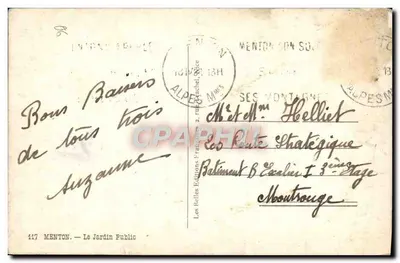 MENTON
13H
ALPES Mmes
MENTON SON SO
SES MONTAGNE
13
ALPES M
Bons Baisers
de tous trois
Suzanne
Mr et Mme Helliet
Route Stratégique
Batiment B Escalier I 3ème Etage
Montrouge
Les Belles Editions
CPARAMA
117 MENTON. - Le Jardin Public